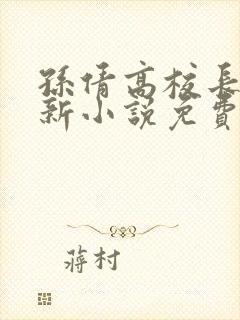 孫倩高校長
新小說免費
蔣村